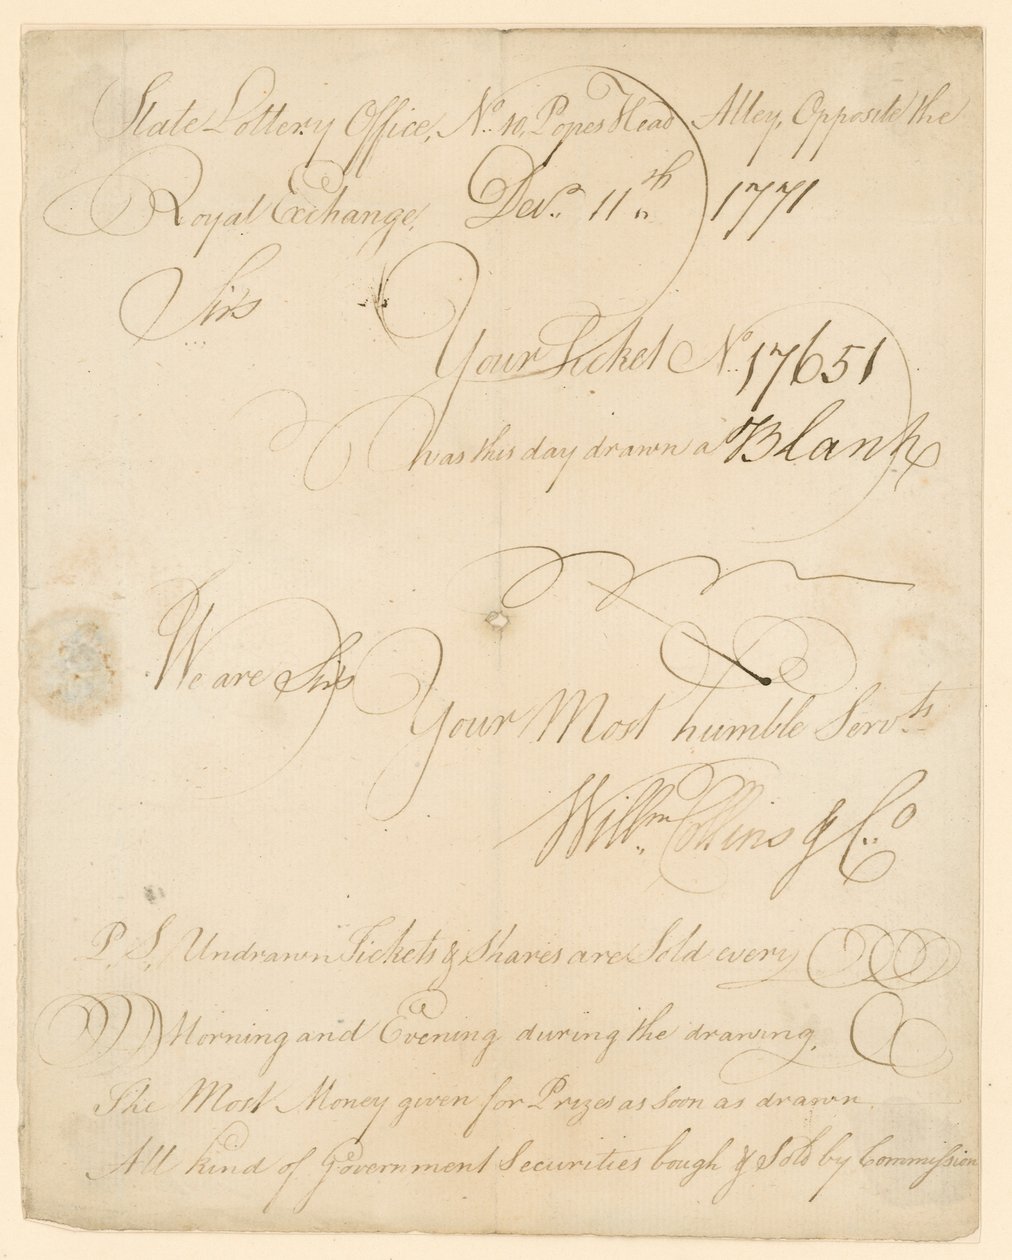 State Lottery Office, No. 10, Popes Head Alley, Opposite the
Royal Exchange, Decr. 11th 1771
Sirs
Your Ticket No. 17651
was this day drawn a Blank
We are Sirs
Your Most humble Servts
Willm Collins & Co
P. S. Undrawn Tickets & Shares are Sold every
Morning and Evening during the drawing.
The Most Money given for Prizes as soon as drawn
All kind of Government Securities bough & Sold by Commission